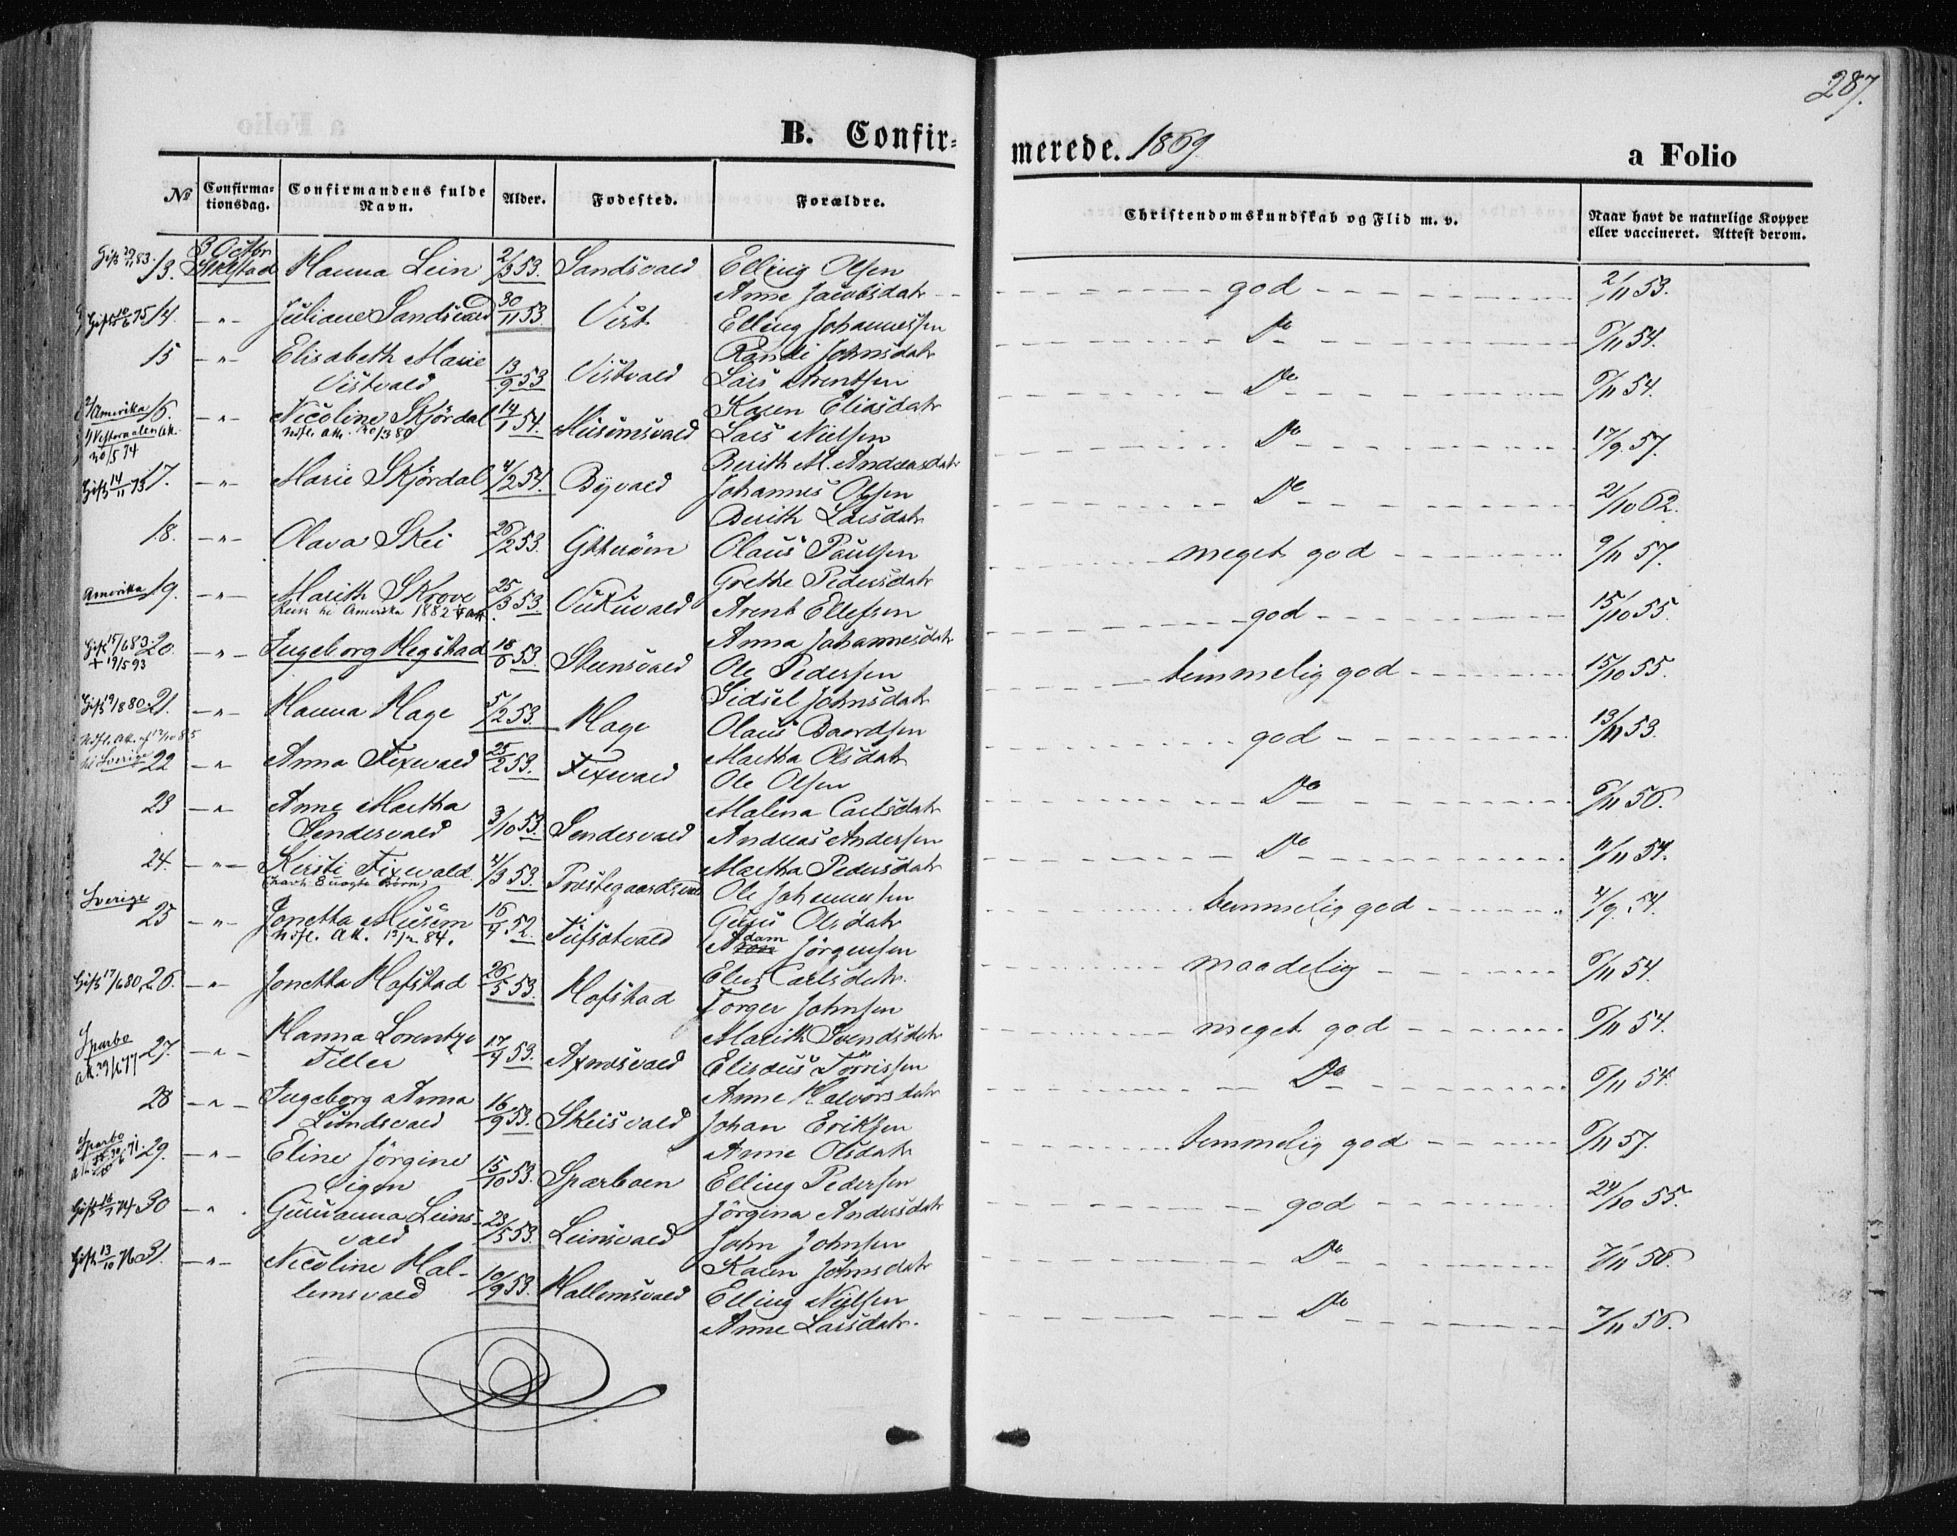 287.
B. Confir=
merede. 1869.
a Folio
No
Confirma=
tionsdag.
Confirmandens fulde
Navn.
Alder.
Fødested.
Forældre.
Christendomskundskab og Flid m. v.
Naar havt de naturlige Kopper
eller vaccineret. Attest derom.
Gift 29/11 83. 13. 3 Octbr Hanna Lein 2/3 53. Sandsvald Elling Olsen
Anne Jacobsdatr god 2/11 53.
Gift 10/6 75 14. -"- Juliane Sandsvald 30/11 53 Vist Elling Johannessen
Randi Johnsdatr Do 6/11 54.
15 -"- Elisabeth Marie
Vistvald 13/9 53 Vistvald Lars Arentsen
Karen Eliasdatr Do 6/11 54.
Amerika 16. -"- Nicoline Skjørdal 14/1 54. Musumsvald Lars Nielsen
20/5 74
Berith M. Andreasdatr Do 17/9 57.
Gift 14/11 75 17. -"- Marie Skjørdal 4/2 54. Byvald Johannes Olsen
Berith Larsdatr Do 21/10 62.
18. -"- Olava Skei 26/2 53. Ytterøen Olaus Paulsen
Grethe Pedersdatr meget god 9/11 57.
Amerika 19. -"- Marith Skrove 25/3 53. Vukuvald Arent Ellefsen
Reist til Amerika 1882
Anna Johannesdatr god 15/10 55.
Gift 15/6 83 20. -"- Ingeborg Hegstad 18/6 53. Steensvald Ole Pedersen
+ 19/5 93
Sidsel Johnsdatr temmelig god 15/10 55.
21. -"- Hanna Hage 5/2 53. Hage Olaus Baardsen
Martha Olsdatr god 13/11 53.
til Sverige 22 -"- Anna Fixevald 25/2 53. Fixevald Ole Olsen
Malena Carlsdatr Do 6/11 56.
23 -"- Anne Martha
Sendesvald 3/10 53. Sendesvald Andreas Andersen
Martha Pedersdatr Do 11/11 54.
24. -"- Kersti Fixevald 4/3 53. Præstegaardsvald Ole Johannesen
(havt 3 uægte Børn)
Guru Olsdatr temmelig god 4/9 54.
Sverige 25 -"- Jonetta Musum 16/4 52. Tufsetvald Adam Jørgensen
Elen Carlsdatr. maadelig 6/11 54.
Gift 17/6 80. 26. -"- Jonetta Hofstad 26/5 53. Hofstad Torger Johnsen
Marith Svendsdatr meget god 6/11 54.
Sparbo 27. -"- Hanna Lorentze
Tiller 17/4 53. Axnesvald Elisæus Tørrissen
Anne Halvorsdatr Do 6/11 54.
28 -"- Ingeborg Anna
Lundsvald 16/9 53. Skeisvald Johan Eriksen
Anne Olsdatr temmelig god 6/11 57.
Sparbo 29. -"- Eline Jørgine
15/10 53. Sparboen Elling Pedersen
Jørgina Andersdatr god 24/10 55.
Gift 74 30 -"- Guruanna Leins-
vald 23/5 53. Leinsvald John Johnsen
Karen Johnsdatr Do 7/11 56.
Gift 13/10 76 31. -"- Nicoline Hal-
lemsvald 10/9 53. Hallemsvald Elling Nielsen
Anne Larsdatr. Do 7/11 56.